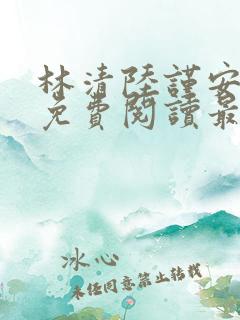 林清陸謹安
免費閱讀最
冰心
未經同意禁止轉載